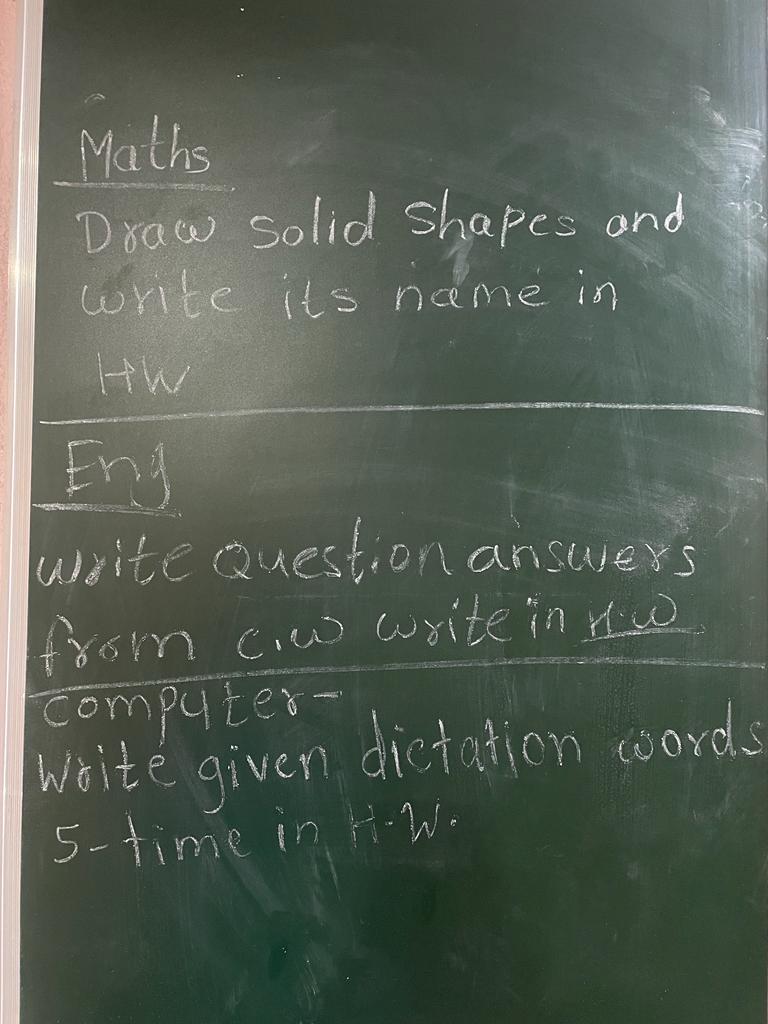 Maths
Draw solid shapes and
write its name in
HW
Eng
write Question answers
from C.W write in H.W
computer-
Write given dictation words
5-time in H.W.